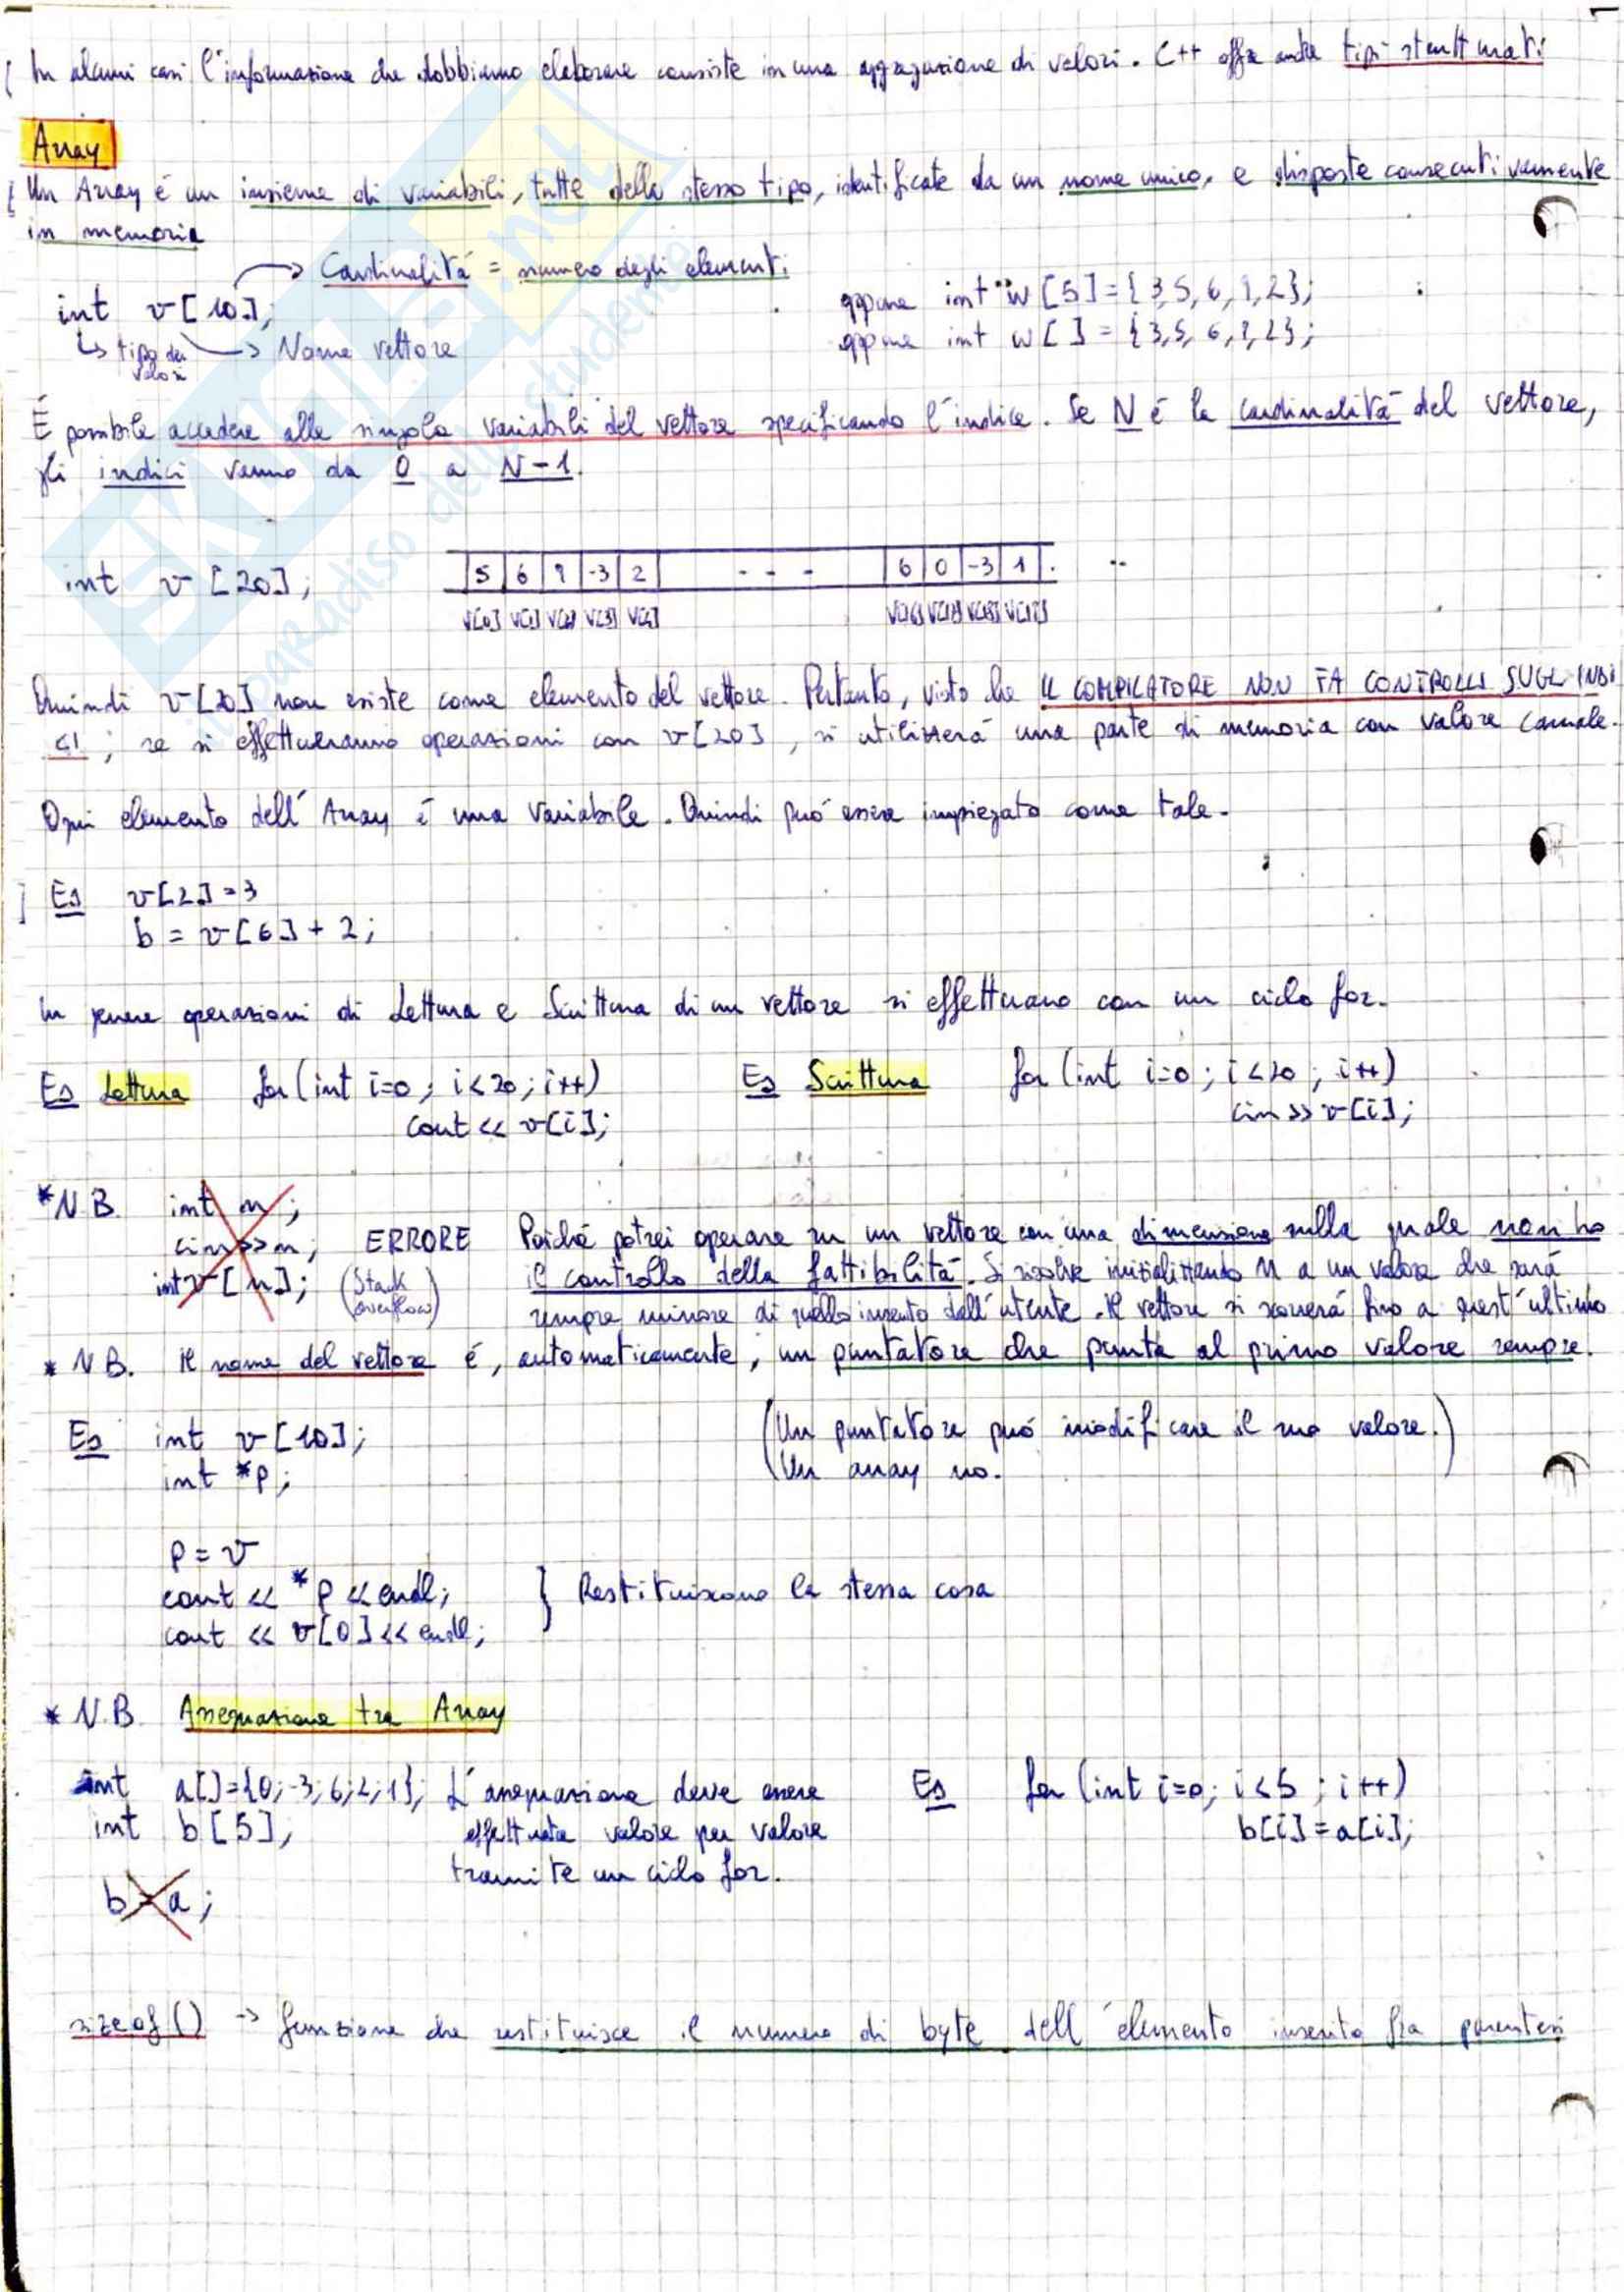 In alcuni casi l'informazione che dobbiamo elaborare consiste in una aggregazione di valori. C++ offre anche tipi strutturati
Array
Un Array é un insieme di variabili, tutte dello stesso tipo, identificate da un nome unico, e disposte consecutivamente
in memoria
→ Cardinalitá = numero degli elementi
int v[10];
↳ tipo dei valori → Nome vettore
oppure int w[5]={3,5,6,9,2};
oppure int w[]={3,5,6,9,2};
É possibile accedere alle singole variabili del vettore specificando l'indice. Se N é la cardinalitá del vettore,
gli indici vanno da 0 a N-1.
int v[20];
5 6 9 -3 2 - - - 6 0 -3 1
v[0] v[1] v[2] v[3] v[4] v[16] v[17] v[18]
Quindi v[20] non esiste come elemento del vettore. Pertanto, visto che IL COMPILATORE NON FA CONTROLLI SUGL INDI
CI; se si effettueranno operazioni con v[20], si utilizzerá una parte di memoria con valore casuale.
Ogni elemento dell'Array é una variabile. Quindi puó essere impiegato come tale.
Es v[2]=3
b = v[6]+2;
In genere operazioni di Lettura e Scrittura di un vettore si effettuano con un ciclo for.
Es Lettura for(int i=0; i<20; i++)
cout << v[i];
Es Scrittura for(int i=0; i<20; i++)
cin>>v[i];
*N.B. int n;
cin>>n;
int v[n];
ERRORE
(Stack overflow)
Poiché potrei operare su un vettore con una dimensione sulla quale non ho
il controllo della fattibilitá. Si risolve inizializzando N a un valore che sará
sempre minore di quello inserito dall'utente. Il vettore si scorrerá fino a quest'ultimo
* N.B. Il nome del vettore é, automaticamente, un puntatore che punta al primo valore sempre.
Es int v[10];
int *p;
(Un puntatore puó modificare il suo valore.)
(Un array no.
p=v
cout << *p <<endl;
cout << v[0]<<endl;
} Restituiscono la stessa cosa
* N.B. Assegnazione tra Array
int a[]={0;-3;6;2;1};
int b[5];
b=a;
L'assegnazione deve essere
effettuata valore per valore
tramite un ciclo for.
Es for(int i=0; i<5; i++)
b[i]=a[i];
sizeof() → funzione che restituisce il numero di byte dell'elemento inserito fra parentesi
SKUOLA.net
paradiso dello studente